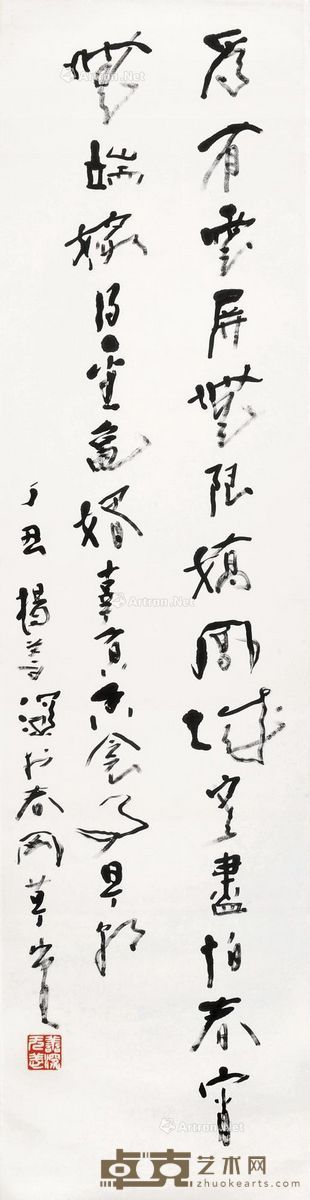 為有雲屏無限嬌鳳城寒盡怕春宵
無端嫁得金龜婿辜負香衾事早朝
丁丑楊善深於春風草堂
善深
Artron.Net
Artron.Net
Artron.Net
Artron.Net
卓克艺术网
zhuokearts.com